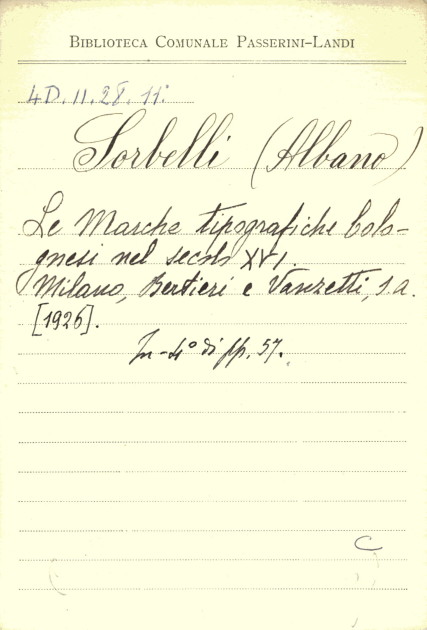 BIBLIOTECA COMUNALE PASSERINI-LANDI
4D.11.28.11°
Sorbelli (Albano)
Le Marche tipografiche bolo-
gnesi nel secolo XVI.
Milano, Bertieri e Vanzetti, s.a.
[1926].
In-4° di pp. 57.
C